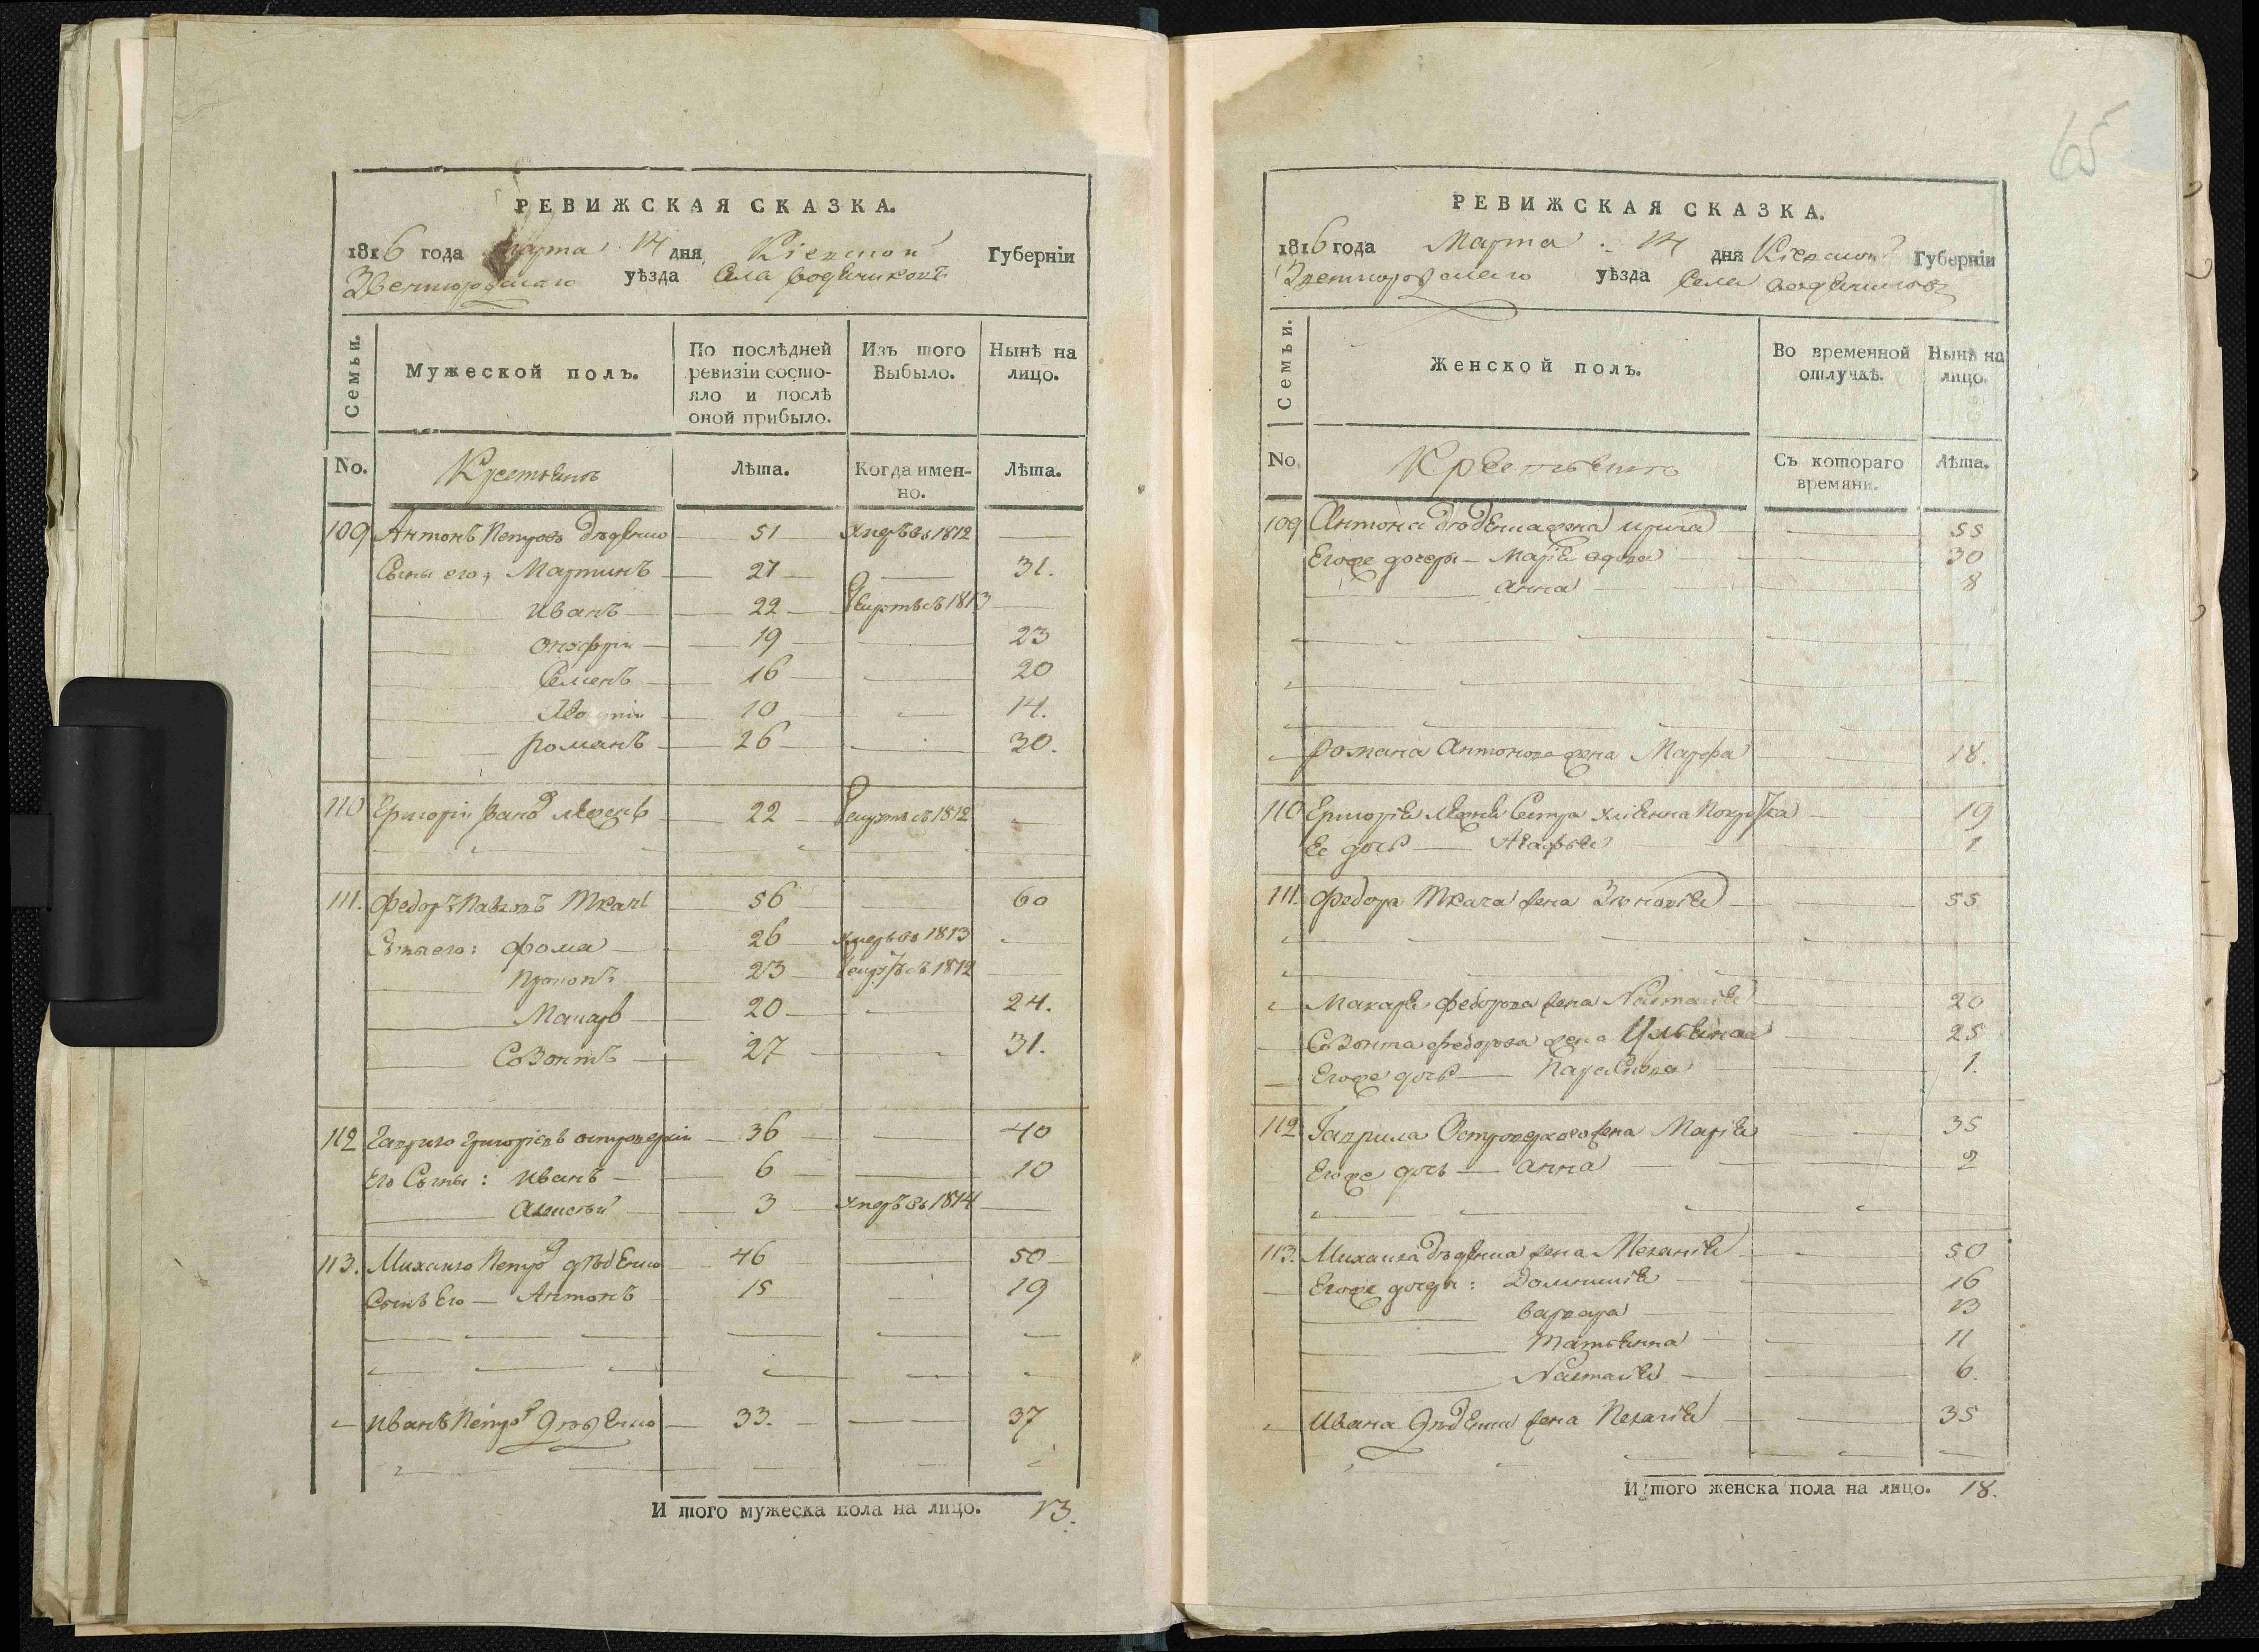 РЕВИЖСКАЯ СКАЗКА.
1816 года Марта 14 дня Кіевской Губерніи
Звенигородскаго уѣзда Села
Семьи. Мужеской полъ. По послѣдней ревизіи состояло и послѣ оной прибыло. Изъ того Выбыло. Нынѣ на лицо.
No. Крестьянъ Лѣта. Когда именно. Лѣта.
109 Антонъ Петровъ Дѣденко 51 умеръ въ 1812
Сыны его; Мартинъ 27 31.
Иванъ 22 1813
Онофрій 19 23
Семенъ 16 20
10 14.
Романъ 26 30.
110 Григорій 22 1812
111. Федоръ Павловъ Ткачь 56 60
Сыны его: Фома 26 умеръ въ 1813
Прокопъ 23 1812
Макаръ 20 24.
Созонтъ 27 31.
112 Гаврило Григорієвъ 36 40
Его Сыны: Иванъ 6 10
Алексѣй 3 умеръ въ 1814
113. Михайло Петровъ Дѣденко 46 50
Сынъ Его Антонъ 15 19
Иванъ Петровъ Дѣденко 33. 37
И того мужеска пола на лицо. 13.
65
РЕВИЖСКАЯ СКАЗКА.
1816 года Марта 14 дня Кіевской Губерніи
Звенигородскаго уѣзда Села
Семьи. Женской полъ. Во временной отлучкѣ. Нынѣ на лицо.
No. Крестьянъ Съ котораго времяни. Лѣта.
109 Антона Дѣденка жена Ирина 55
Егоже дочери Марія вдова 30
Анна 8
Романа Антонова жена Марфа 18.
110 Григорія Сестра Уліянна 19
Ее дочь Агафья 1
111. Федора Ткача жена Зѣновія 55
Макара Федорова жена Настасія 20
Созонта Федорова жена Ульяна 25
Егоже дочь Парасковія 1.
112 Гаврила жена Марія 35
Егоже дочь Анна 2
113. Михайла Дѣденка жена Меланія 50
Егоже дочери: Домникія 16
Варвара 13
Татьянна 11
Настасія 6.
Ивана Дѣденка жена Пелагія 35
И того женска пола на лицо. 18.